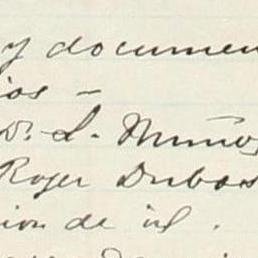 y documen
ios –
Dr. L. Muñoz
Roger Dubos
ion de